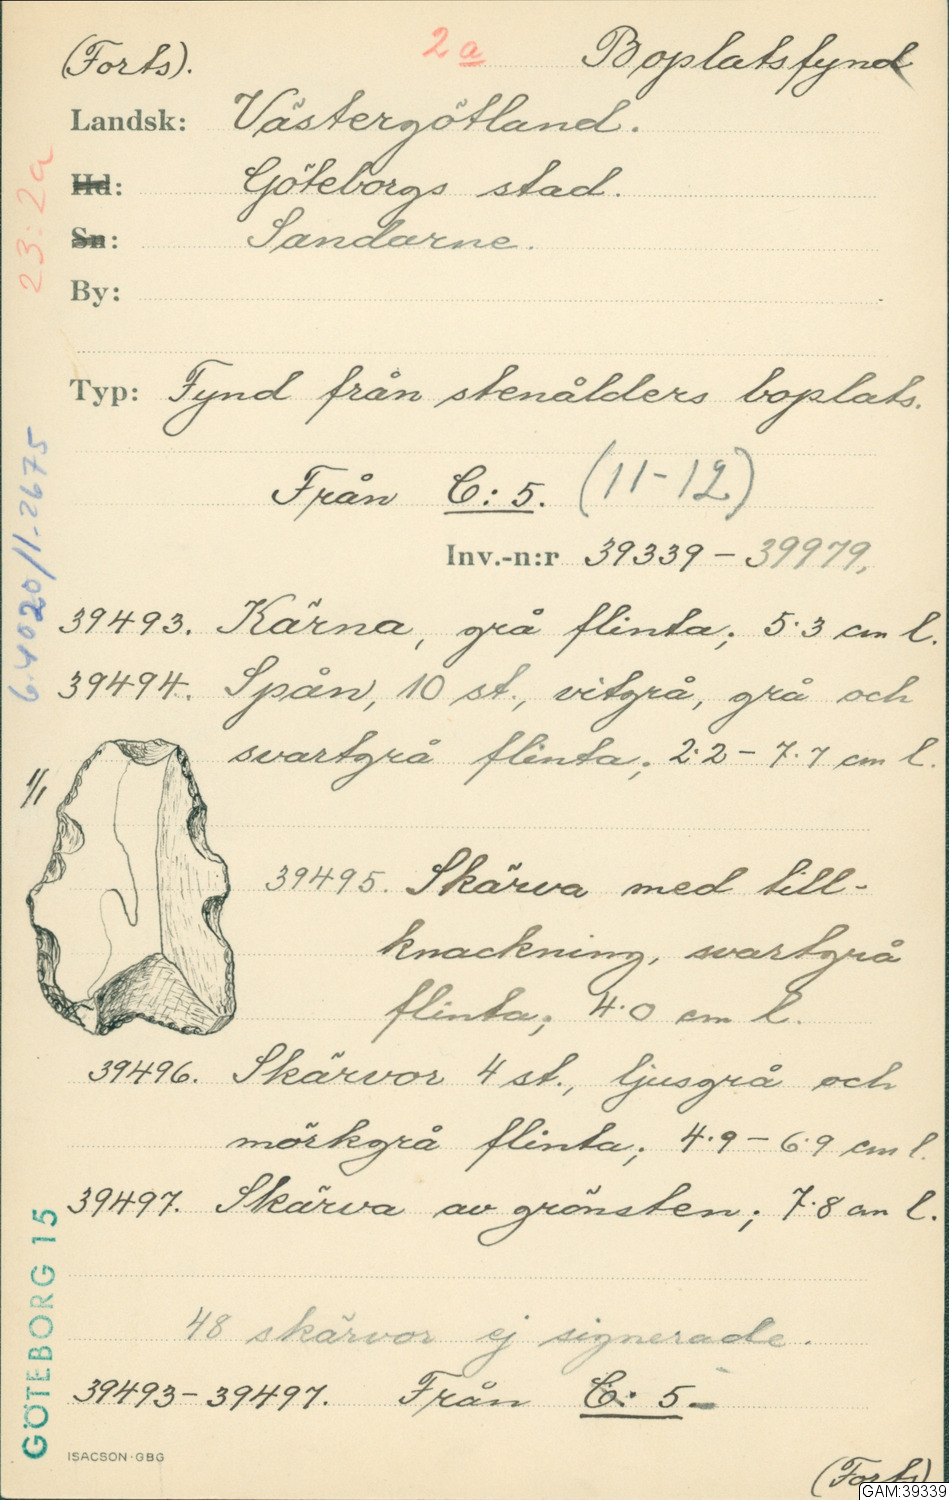 (Forts).
2a
Boplatsfynd
Landsk: Västergötland.
Hd: Göteborgs stad.
Sn: Sandarne.
By:
Typ: Fynd från stenålders boplats.
Från C:5. (11-12)
Inv.-n:r 39339 - 39979.
39493. Kärna, grå flinta; 5.3 cm l.
39494. Spån, 10 st., vitgrå, grå och
svartgrå flinta; 2.2 - 7.7 cm l.
1/1
39495. Skärva med till-
knackning, svartgrå
flinta; 4.0 cm l.
39496. Skärvor 4 st., ljusgrå och
mörkgrå flinta; 4.9 - 6.9 cm l.
39497. Skärva av grönsten; 7.8 cm l.
48 skärvor ej signerade.
39493-39497. Från C:5.
ISACSON-GBG
(Forts)
GAM:39339
23:2a
6.4020/1-2675
GÖTEBORG 15